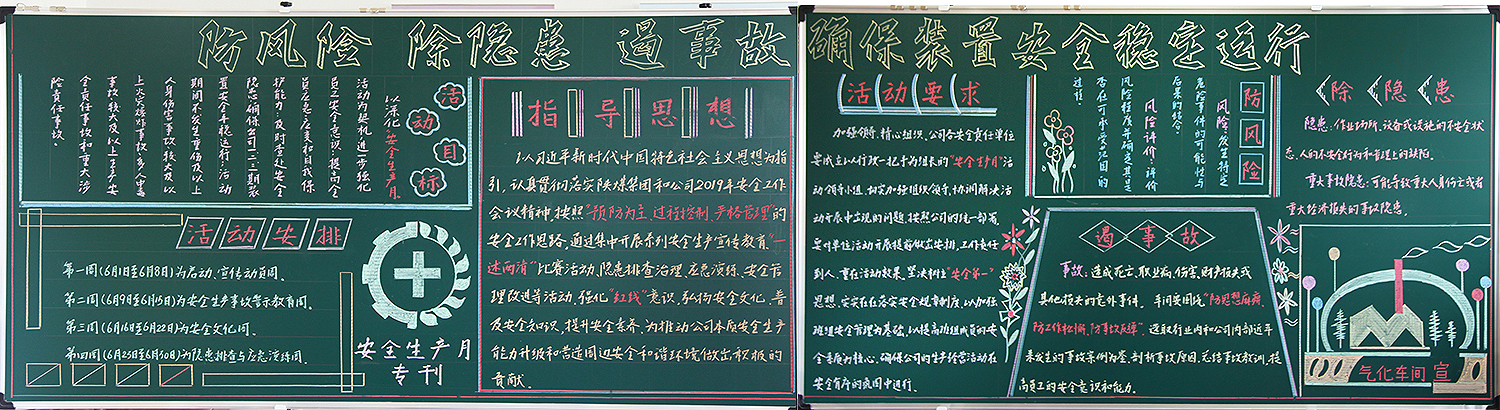 防风险 除隐患 遏事故
活动目标
以深化"安全生产月"
活动为契机,进一步强化
员工安全意识,提高全
员应急、应变和自我保
护能力,及时查处安全
隐患,确保公司二二一期装
置安全平稳运行,活动
期间不发生重伤及以上
人身伤害事故,较大及以
上火灾爆炸事故,多人中毒
事故,较大及以上生产安
全责任事故和重大涉
险责任事故。
活动安排
第一周(6月1日至6月8日)为启动、宣传动员周。
第二周(6月9日至6月15日)为安全生产事故警示教育周。
第三周(6月16日至6月22日)为安全文化周。
第四周(6月23日至6月30日)为隐患排查与应急演练周。
安全生产月
专刊
指导思想
以习近平新时代中国特色社会主义思想为指
引,认真贯彻落实陕煤集团和公司2019年安全工作
会议精神,按照"预防为主、过程控制、严格管理"的
安全工作思路,通过集中开展系列安全生产宣传教育、"一
述两清"比赛活动、隐患排查治理、应急演练、安全管
理改进等活动,强化"红线"意识,弘扬安全文化、普
及安全知识、提升安全素养,为推动公司本质安全生产
能力升级和营造周边安全和谐环境做出积极的
贡献。
确保装置安全稳定运行
活动要求
加强领导,精心组织。公司各安全责任单位
要成立以行政一把手为组长的"安全生产月"活
动领导小组,切实加强组织领导,协调解决活
动开展中出现的问题,按照公司的统一部署,
各单位活动开展提前做出安排,工作责任
到人,重在活动效果,坚决树立"安全第一"
思想,实实在在落实安全规章制度,以加强
班组安全管理为基础,以提高班组成员的安
全素质为核心,确保公司的生产经营活动在
安全有序的氛围中进行。
防风险
风险:发生特定
危险事件的可能性与
后果的结合。
风险评价:评价
风险程度并确定其是
否在可承受范围的
过程。
除隐患
隐患:作业场所、设备或设施的不安全状
态,人的不安全行为和管理上的缺陷。
重大事故隐患:可能导致重大人身伤亡或者
重大经济损失的事故隐患。
遏事故
事故:造成死亡、职业病、伤害、财产损失或
其他损失的意外事件。车间要围绕"防思想麻痹、
防工作松懈、防事故反弹",选取行业内和公司内部近年
来发生的事故案例为鉴,剖析事故原因,总结事故教训,提
高员工的安全意识和能力。
气化车间 宣